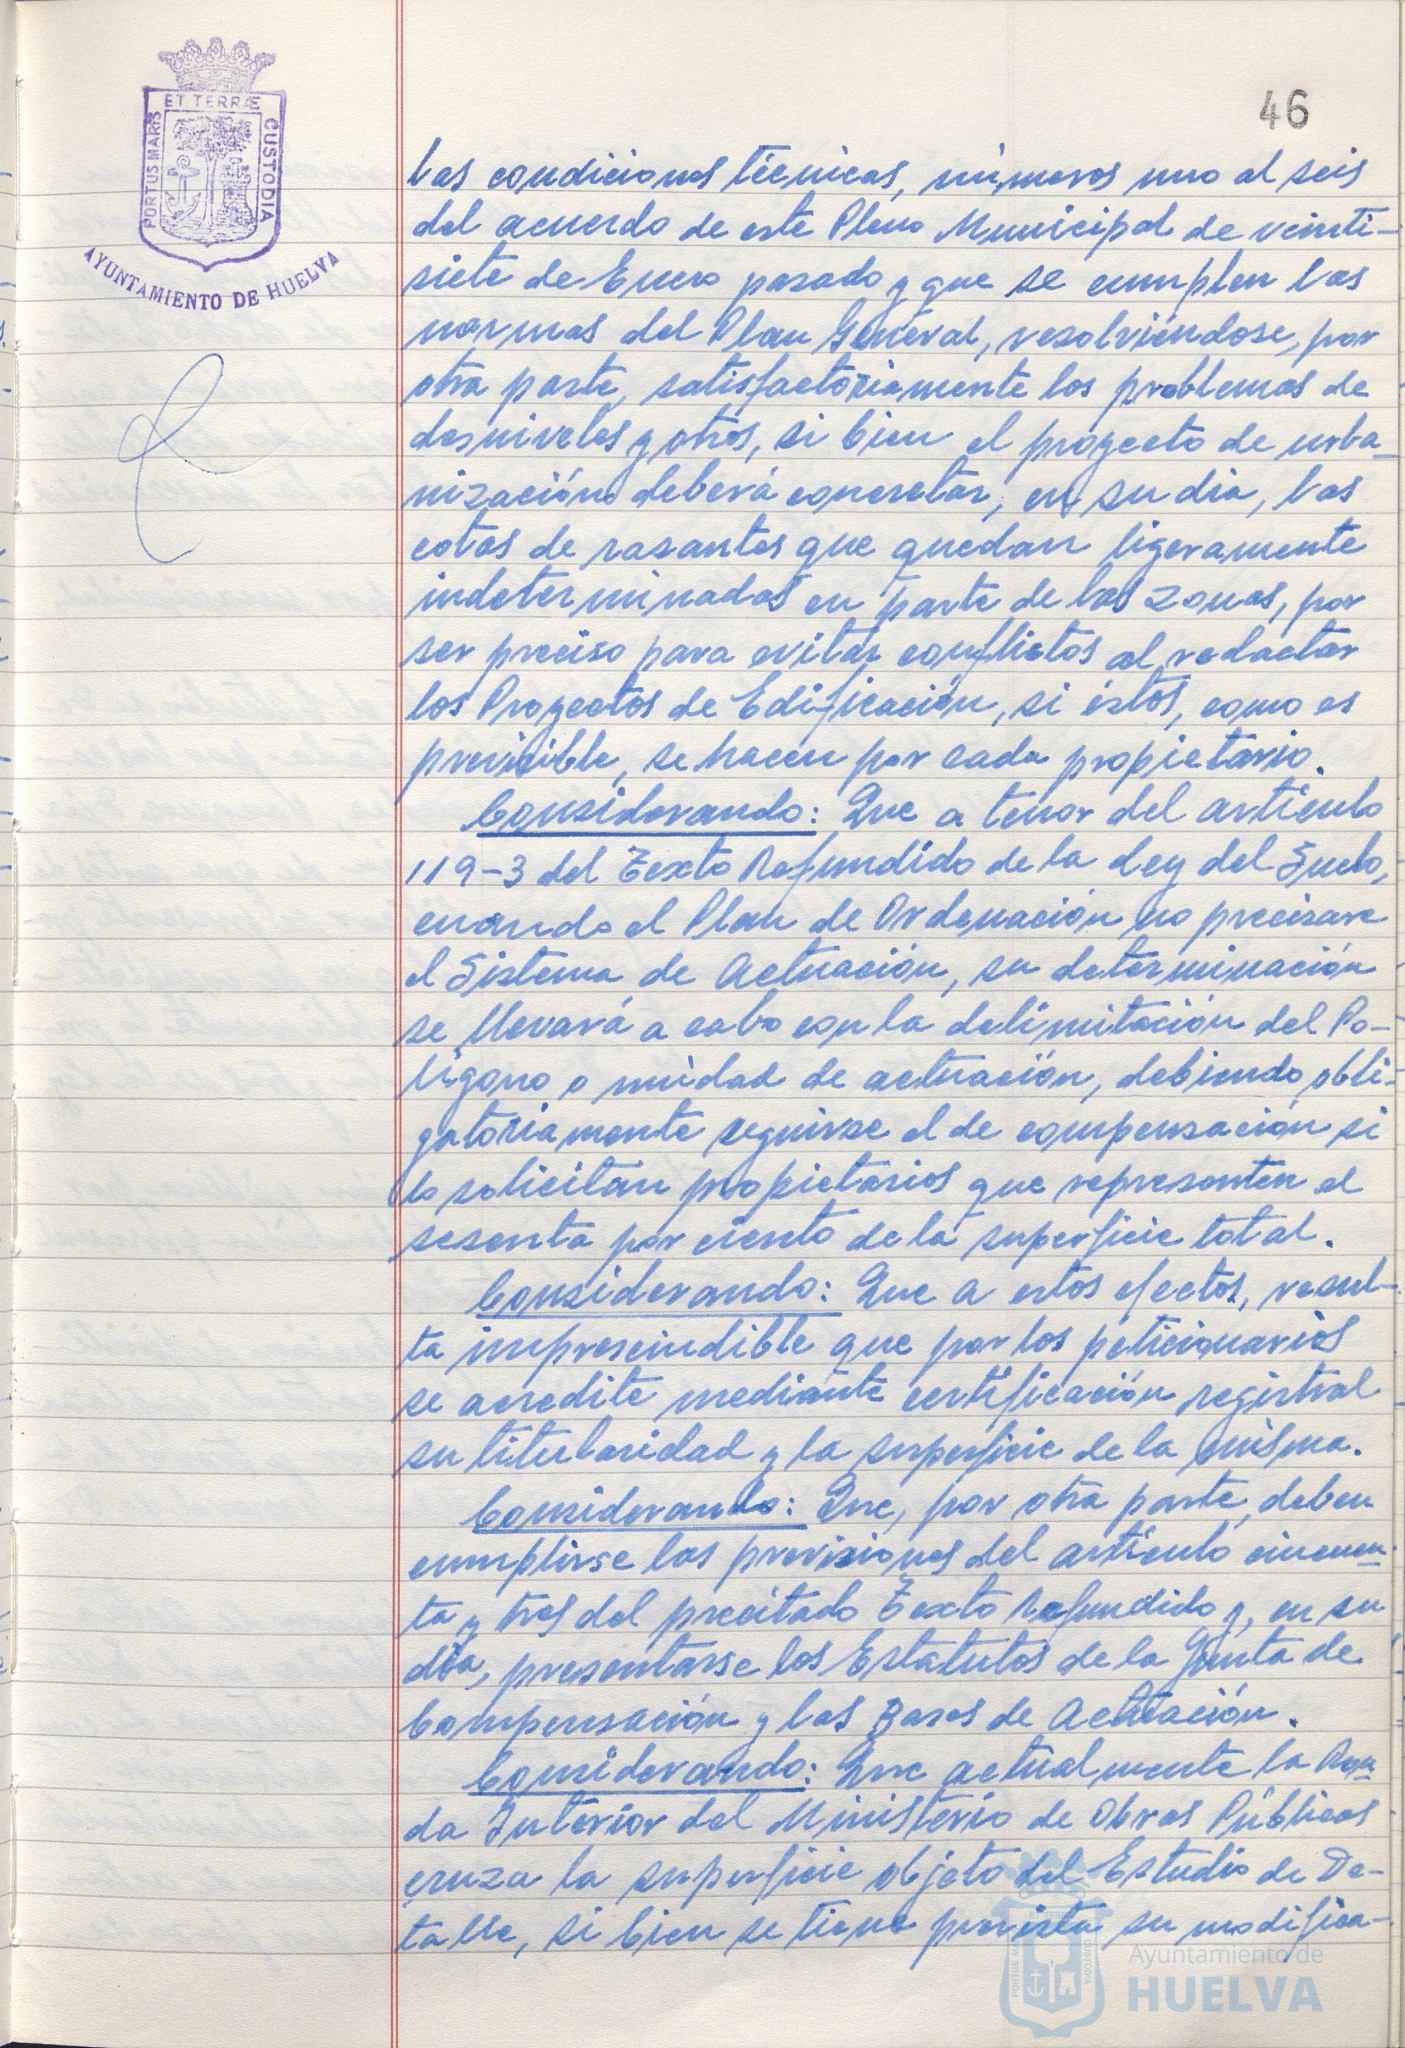 46
ET TERRÆ
PORTUS MARIS
CUSTODIA
AYUNTAMIENTO DE HUELVA
las condiciones técnicas, números uno al seis
del acuerdo de este Pleno Municipal de veinti-
siete de Enero pasado y que se cumplen las
normas del Plan General, resolviéndose, por
otra parte, satisfactoriamente los problemas de
desniveles y otros, si bien el proyecto de urba-
nización deberá concretar, en su dia, las
cotas de rasantes que quedan ligeramente
indeterminadas en parte de las zonas, por
ser preciso para evitar conflictos al redactar
los Proyectos de Edificación, si éstos, como es
previsible, se hacen por cada propietario.
Considerando: Que a tenor del artículo
119-3 del Texto Refundido de la Ley del Suelo,
cuando el Plan de Ordenación no precisare
el Sistema de Actuación, su determinación
se llevará a cabo con la delimitación del Po-
lígono o unidad de actuación, debiendo obli-
gatoriamente seguirse el de compensación si
lo solicitan propietarios que representen el
sesenta por ciento de la superficie total.
Considerando: Que a estos efectos, resul-
ta imprescindible que por los peticionarios
se acredite mediante certificación registral
su titularidad y la superficie de la misma.
Considerando: Que, por otra parte, deben
cumplirse las previsiones del artículo cincuen-
ta y tres del precitado Texto Refundido y, en su
día, presentarse los Estatutos de la Junta de
Compensación y las Bases de Actuación.
Considerando: Que actualmente la Ron-
da Interior del Ministerio de Obras Públicas
cruza la superficie objeto del Estudio de De-
talle, si bien se tiene prevista su modifica-
Ayuntamiento de
HUELVA